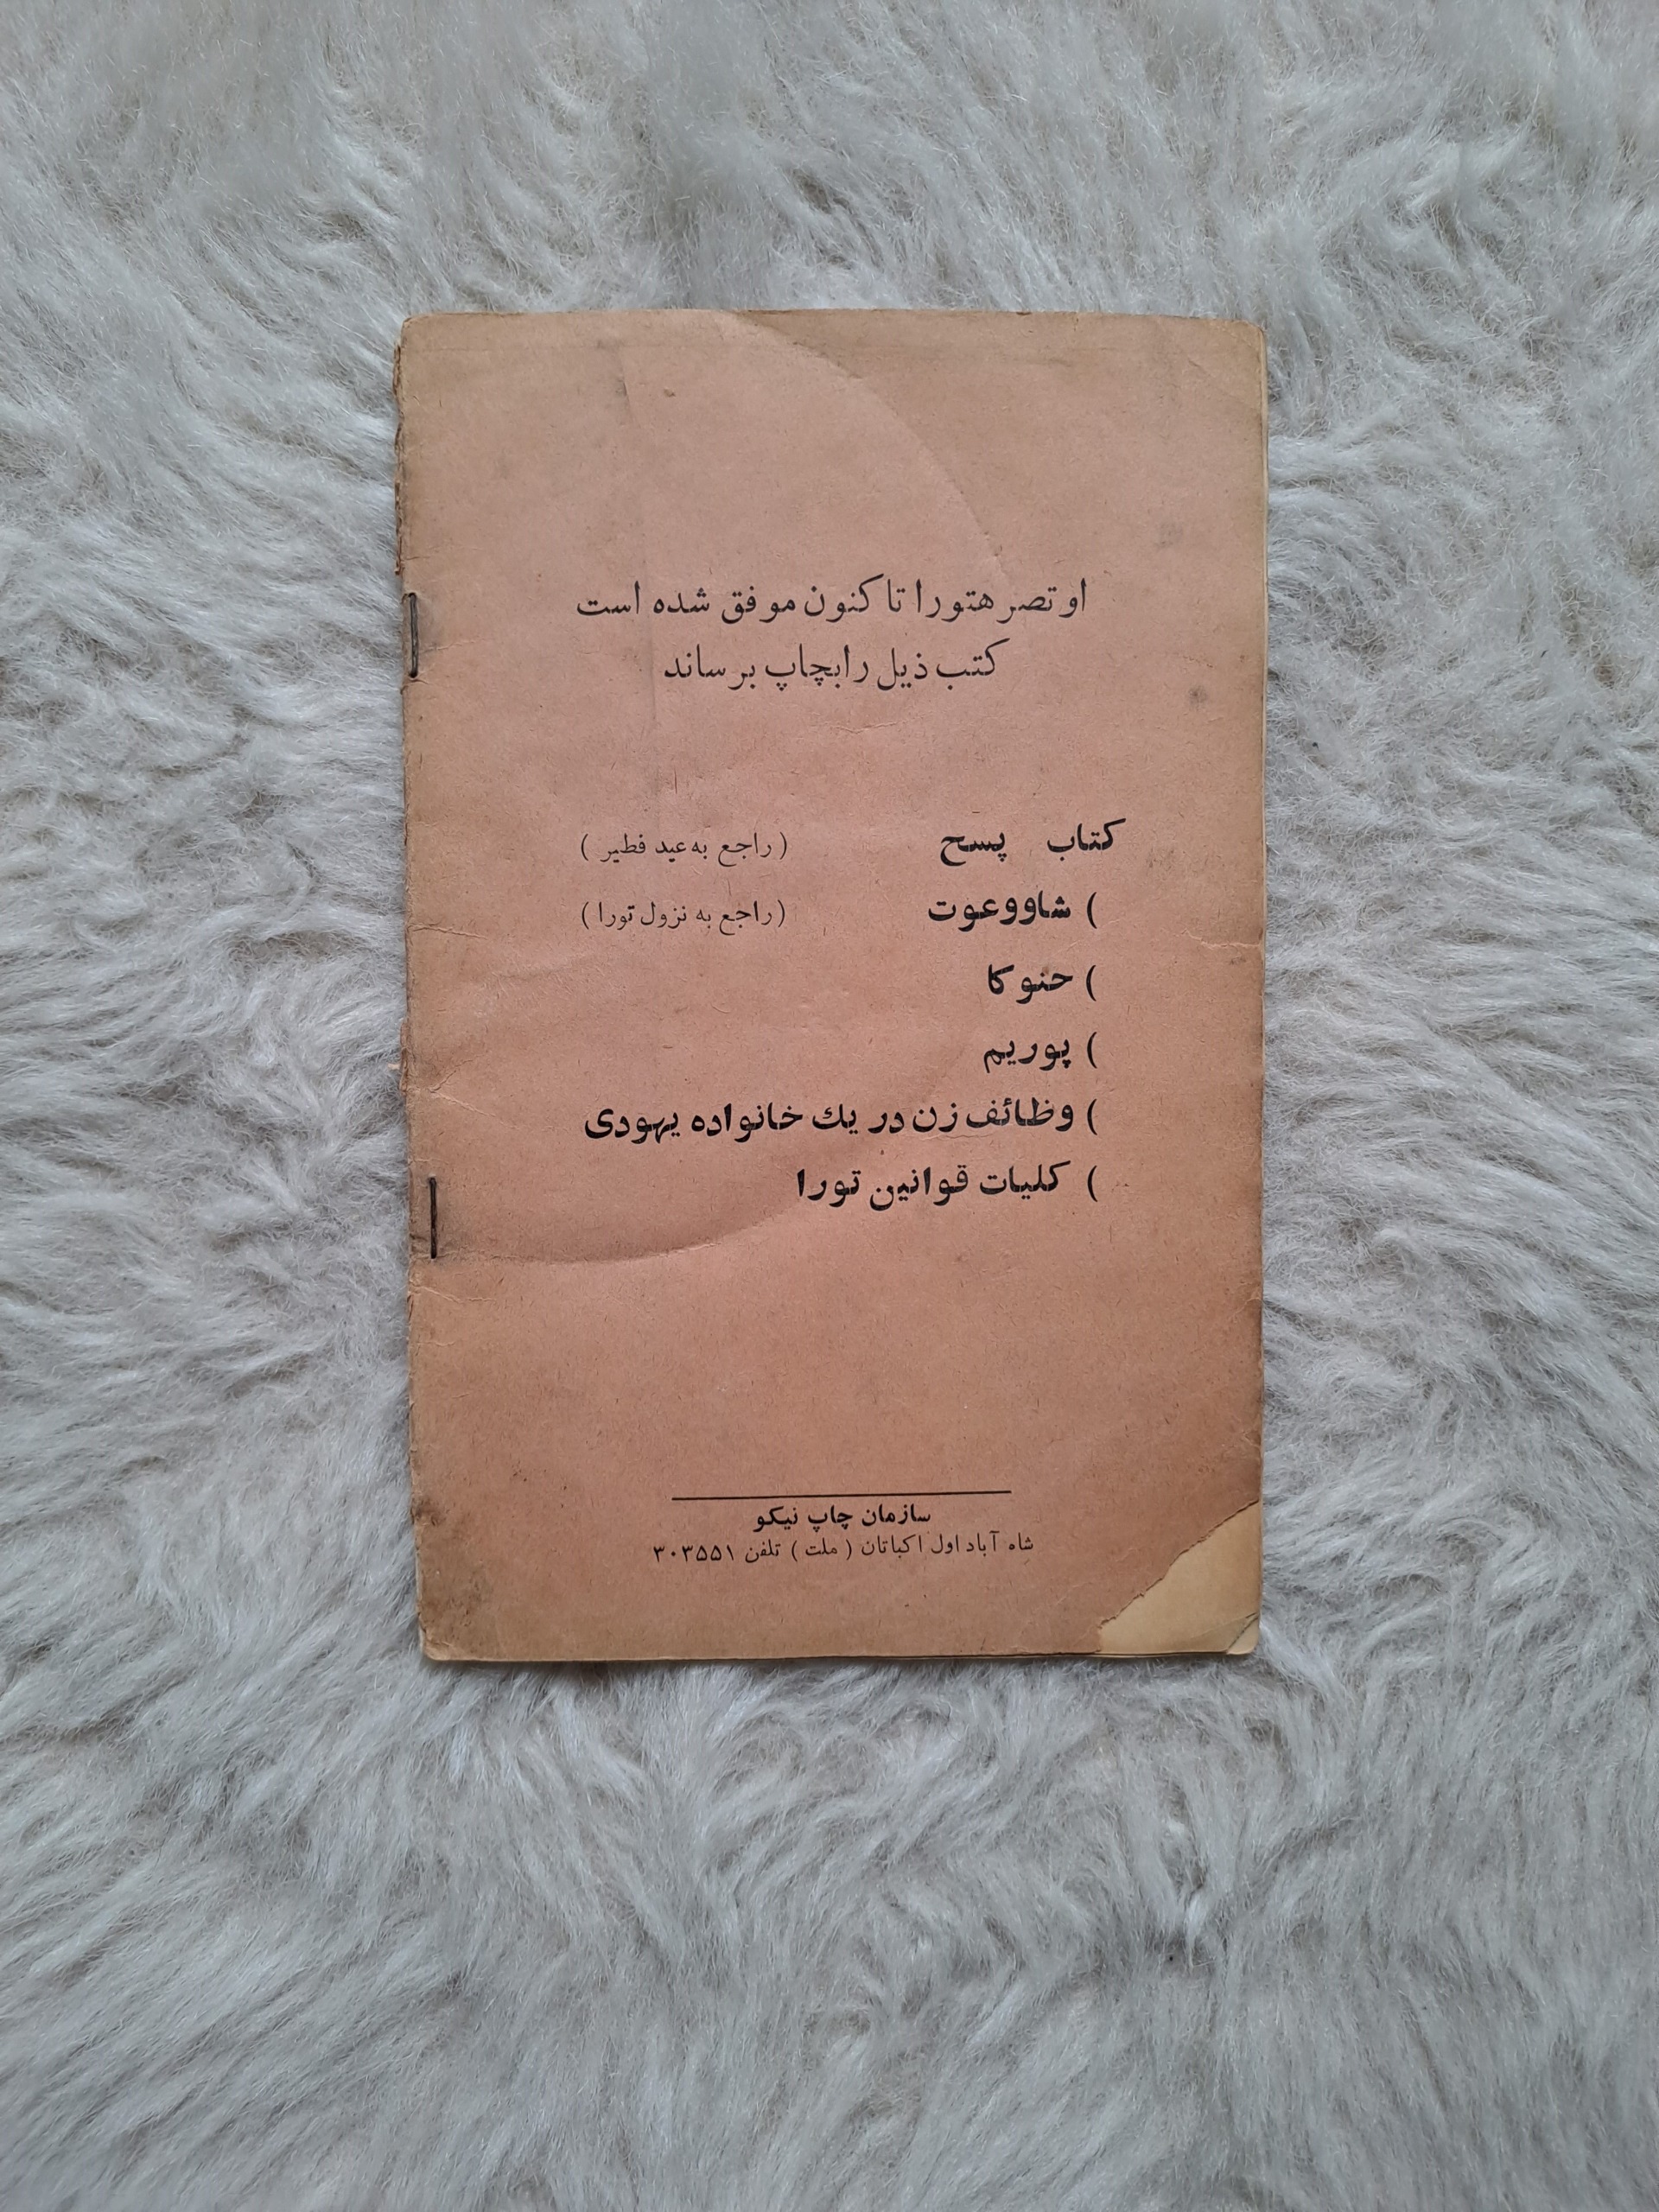 اوتصر هتورا تاکنون موفق شده است
کتب ذیل رابچاپ برساند
کتاب پسح (راجع به عید فطیر)
) شاووعوت (راجع به نزول تورا)
) حنوکا
) پوریم
) وظائف زن در یك خانواده یهودی
) کلیات قوانین تورا
سازمان چاپ نیکو
شاه آباد اول اکباتان (ملت) تلفن ۳۰۳۵۵۱